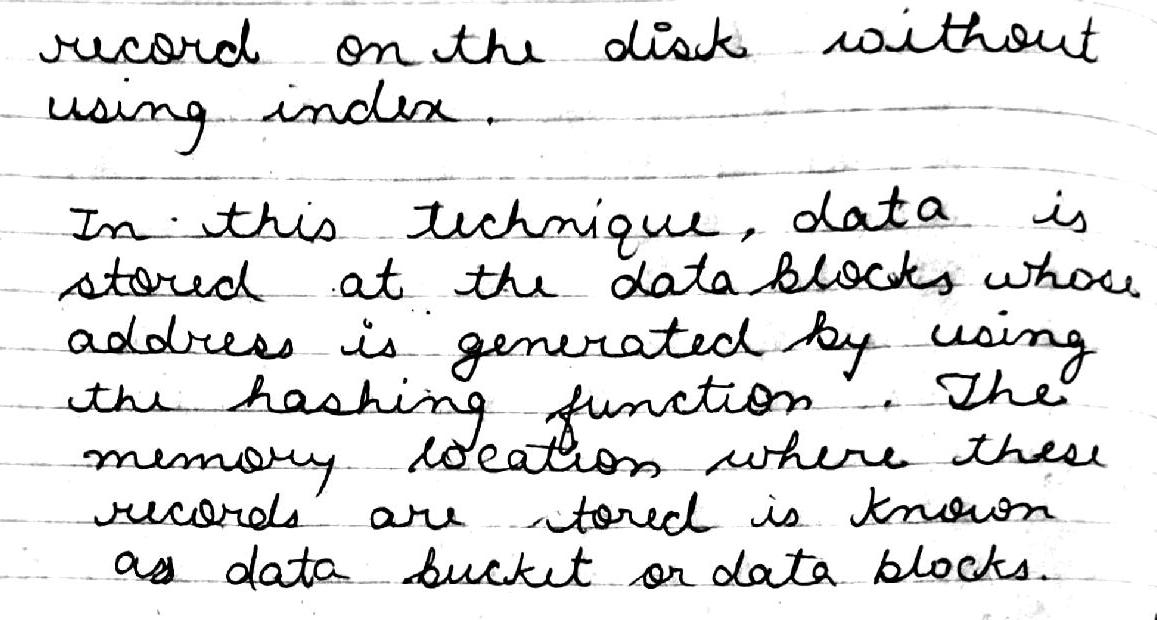 record on the disk without
using index.
In this technique, data is
stored at the data blocks whose
address is generated by using
the hashing function. The
memory location where these
records are stored is known
as data bucket or data blocks.